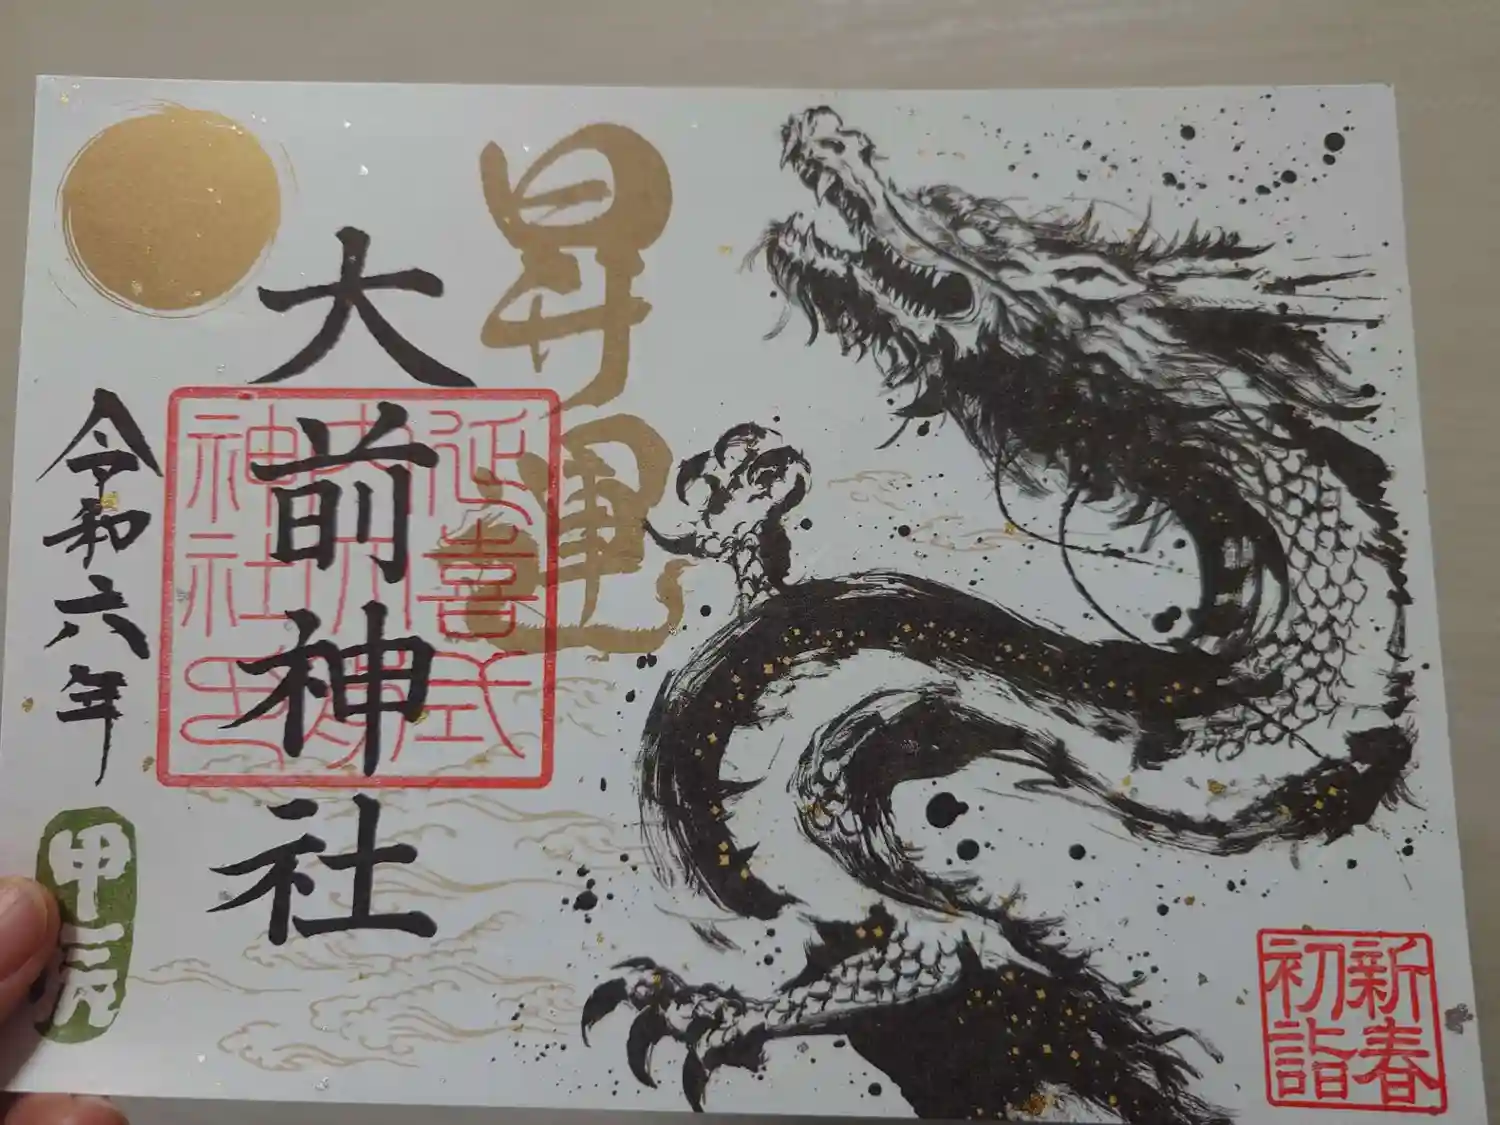 昇運
大前神社
延喜式
神社
令和六年
甲辰
新春
初詣